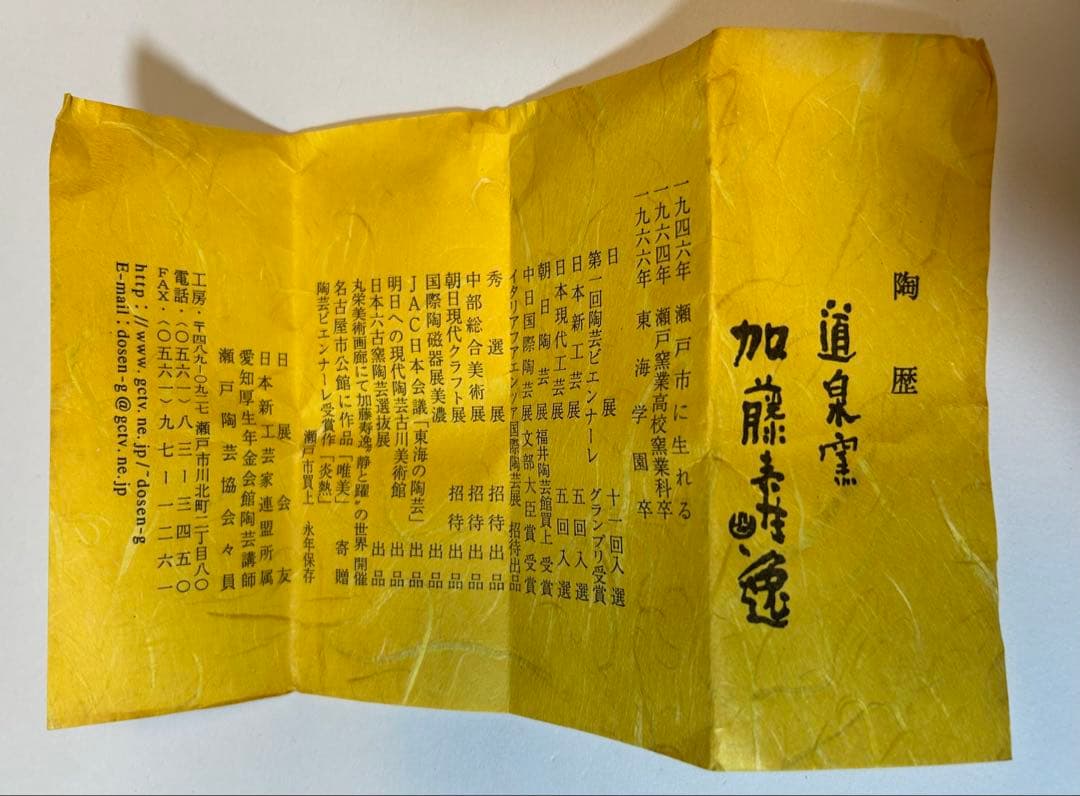 陶歴
道泉窯
加藤寿逸
一九四六年 瀬戸市に生れる
一九六四年 瀬戸窯業高校窯業科卒
一九六六年 東海学園卒
日展 十一回入選
第一回陶芸ビエンナーレ グランプリ受賞
日本新工芸展 五回入選
日本現代工芸展 五回入選
朝日陶芸展 福井陶芸館買上 受賞
中日国際陶芸展 文部大臣賞 受賞
イタリアファエンツア国際陶芸展 招待出品
秀選展 招待出品
中部総合美術展 招待出品
朝日現代クラフト展 招待出品
国際陶磁器展美濃 出品
JAC日本会議「東海の陶芸」 出品
明日への現代陶芸古川美術館 出品
日本六古窯陶芸選抜展 出品
丸栄美術画廊にて加藤寿逸〝静と躍〟の世界 開催
名古屋市公館に作品「唯美」 寄贈
陶芸ビエンナーレ受賞作「炎熱」 瀬戸市買上 永年保存
日展会友
日本新工芸家連盟所属
愛知厚生年金会館陶芸講師
瀬戸陶芸協会々員
工房・〒四八九-〇九二七 瀬戸市川北町二丁目八〇
電話・(〇五六一)八三-三四五〇
FAX・(〇五六一)九七-一二六一
http://www.gctv.ne.jp/~dosen-g
E-mail:dosen-g@gctv.ne.jp